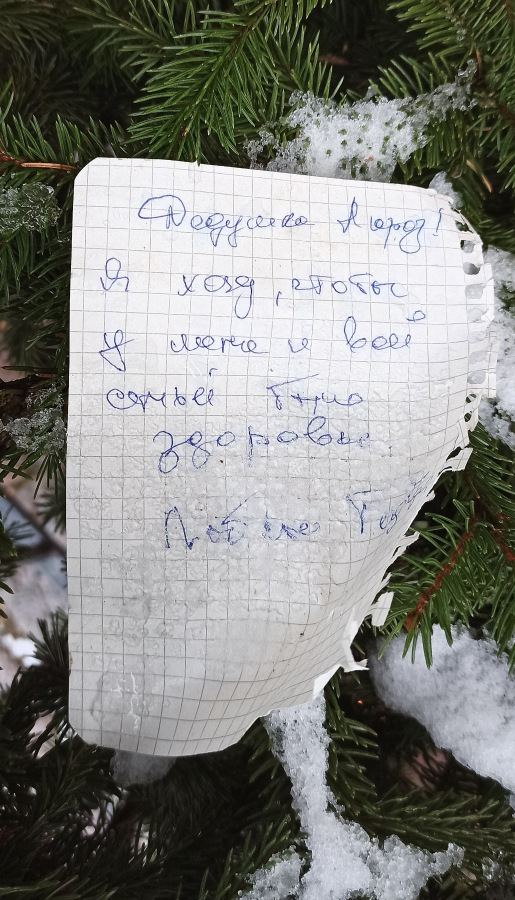 Дедушка Мороз!
Я хочу, чтобы
у меня и всей
семьи было
здоровье
Люблю Тебя